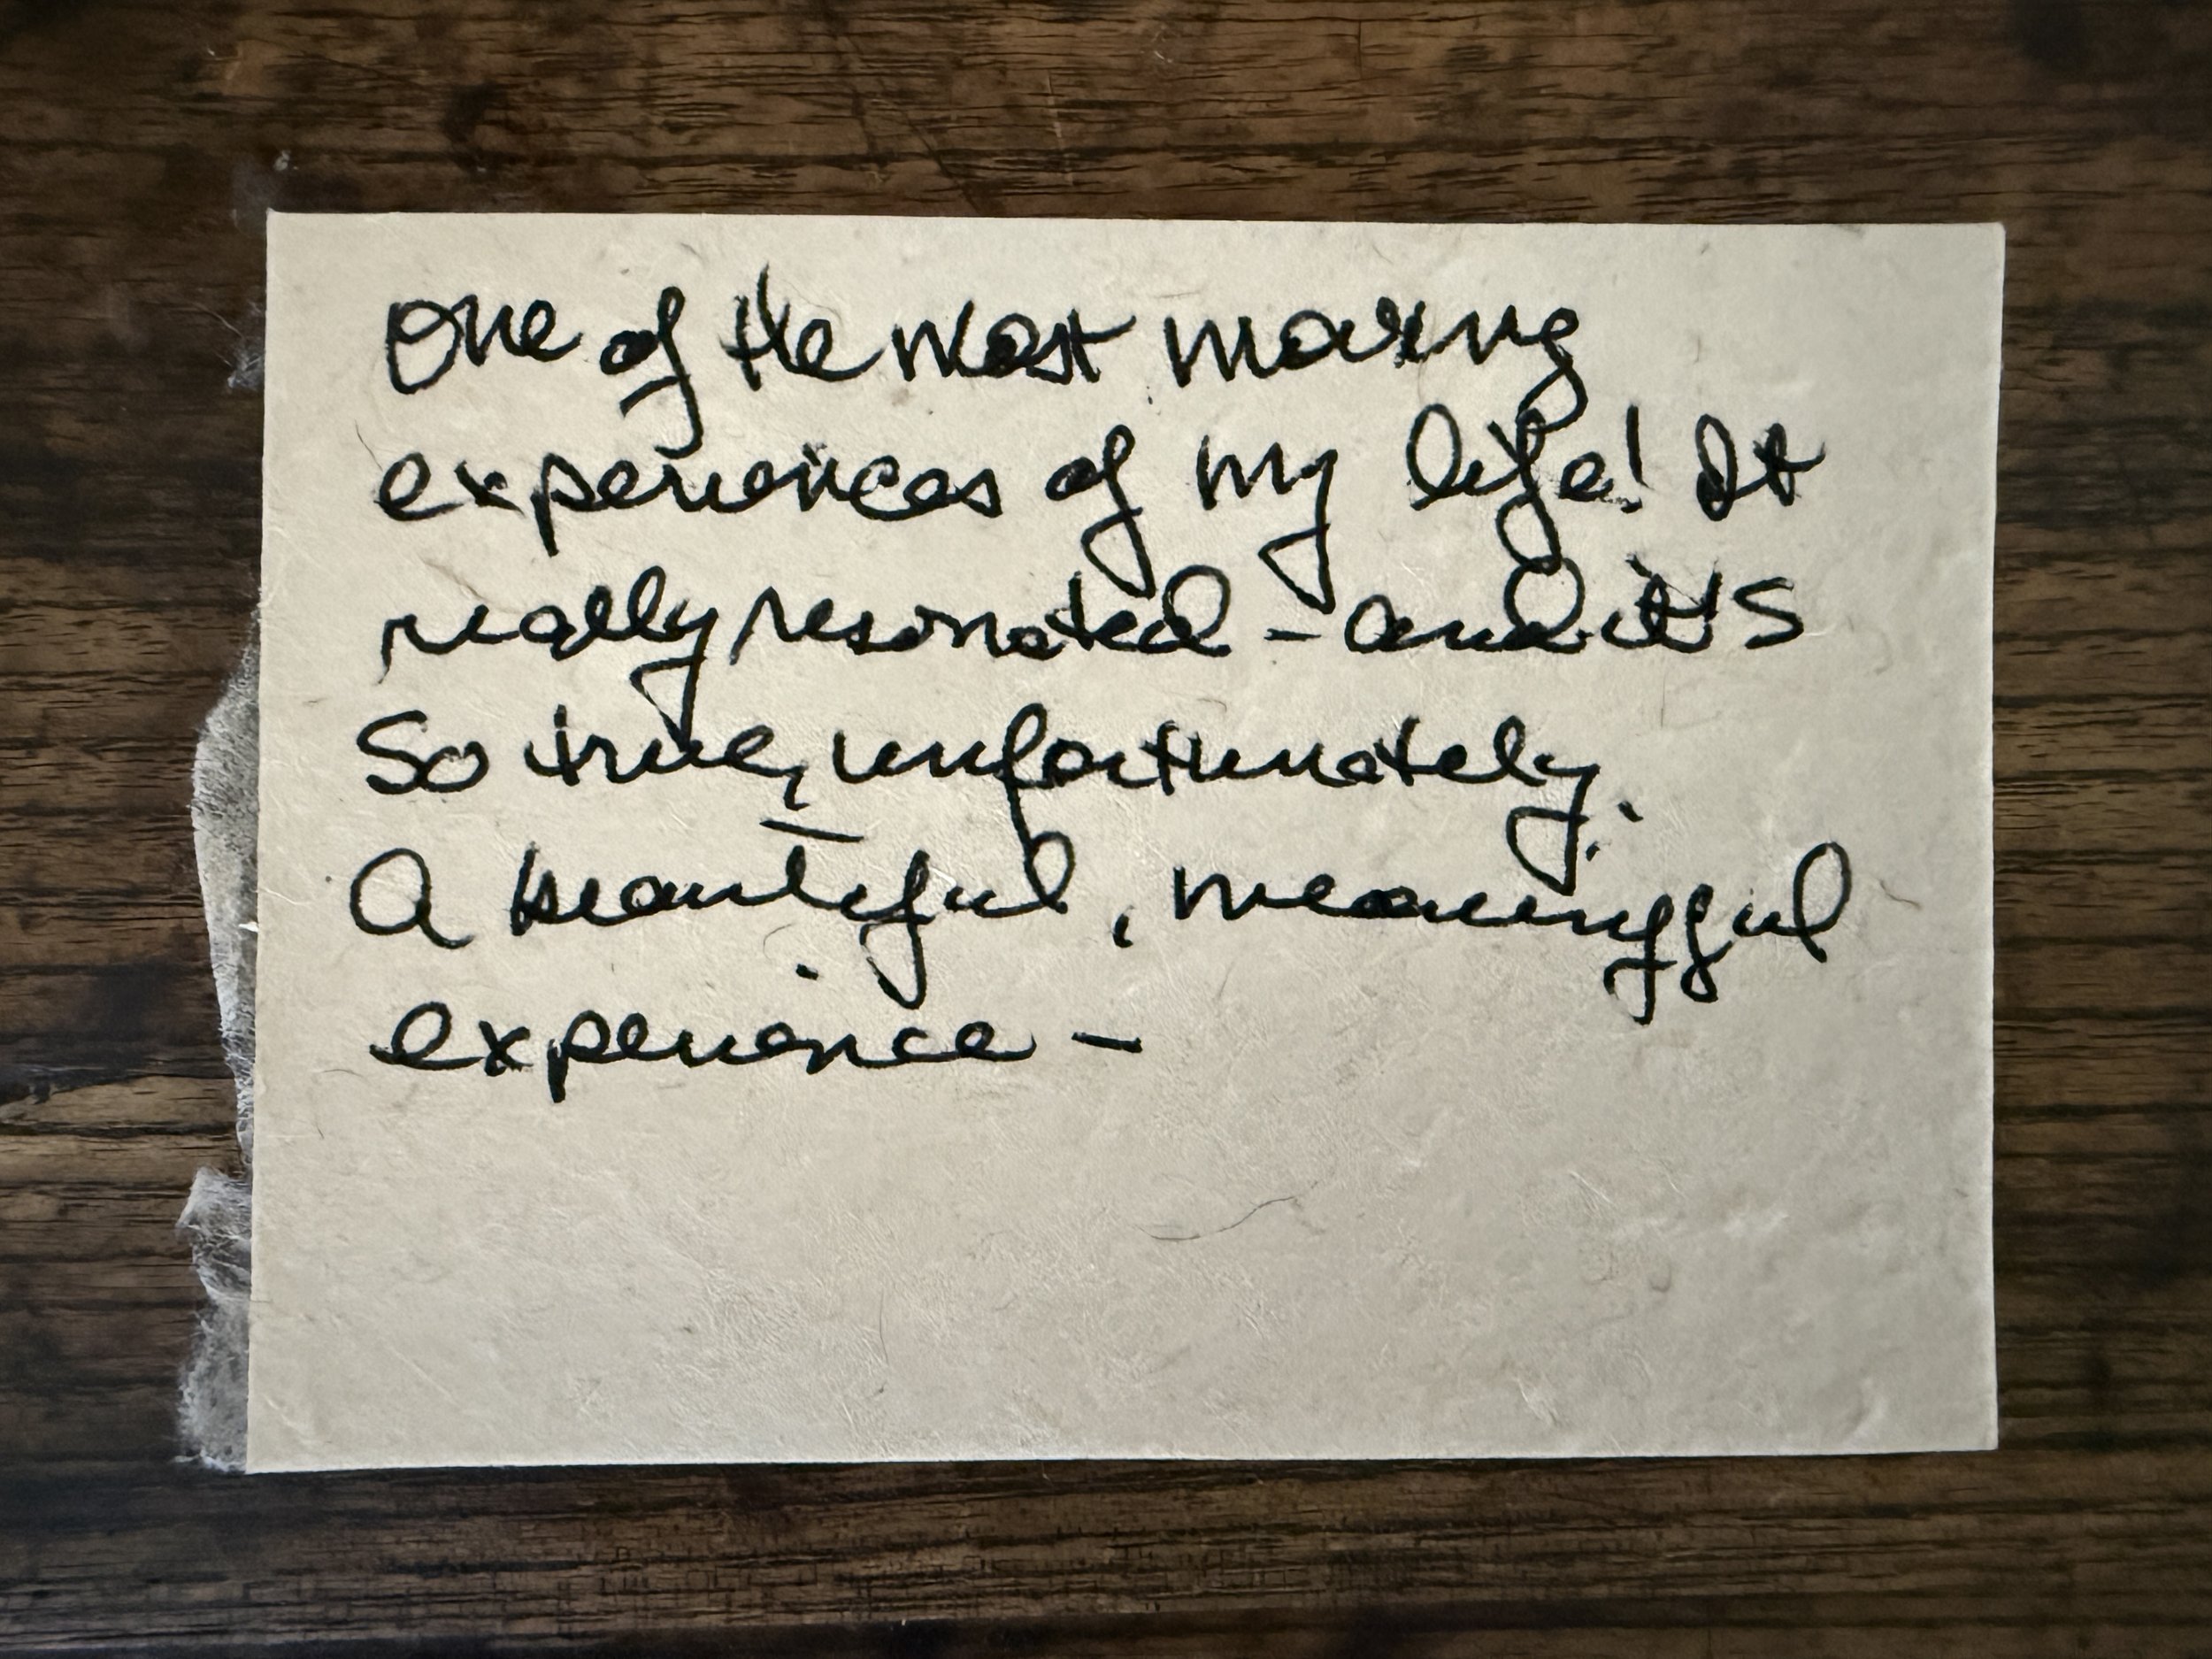 One of the most moving
experiences of my life! It
really resonated - and it's
so true, unfortunately.
A beautiful, meaningful
experience -